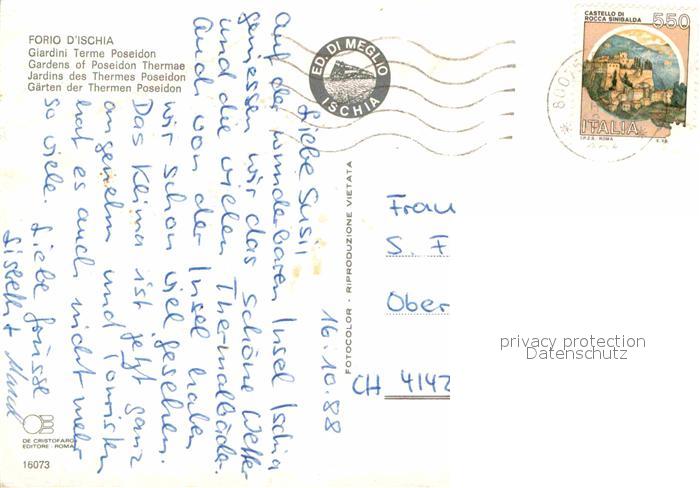 FORIO D'ISCHIA
Giardini Terme Poseidon
Gardens of Poseidon Thermae
Jardins des Thermes Poseidon
Gärten der Thermen Poseidon
ED. DI MEGLIO
ISCHIA
CASTELLO DI
ROCCA SINIBALDA
550
ITALIA
I.P.Z.S. - ROMA
16.10.88
Liebe Susi
Auf der wunderbaren Insel Ischia
geniessen wir das schöne Wetter
und die vielen Thermalbäder.
Auch von der Insel haben
wir schon viel gesehen.
Das Klima ist jetzt ganz
angenehm und Touristen
hat es auch nicht mehr
so viele.
Liebe Grüsse
FOTOCOLOR - RIPRODUZIONE VIETATA
Frau
S. F
Ober
CH 4142
privacy protection
Datenschutz
DE CRISTOFARO
EDITORE - ROMA
16073